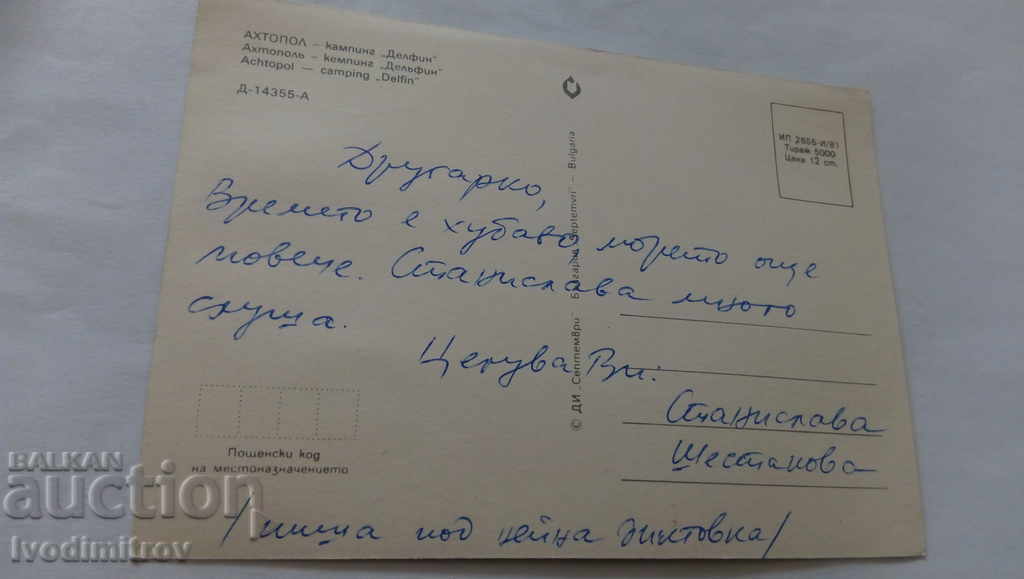 АХТОПОЛ – кампинг „Делфин“
Ахтополь – кемпинг „Дельфин“
Achtopol — camping „Delfin“
Д-14355-А
ИП 2655-И/81
Тираж 5000
Цена 12 ст.
Другарко,
Времето е хубаво морето още
повече. Станислава много
слуша.
Целува Ви:
Станислава
Шестакова
/пиша под нейна диктовка/
Пощенски код
на местоназначението
© ДИ „Септември“ Bulgaria
BALKAN
auction
Ivodimitrov